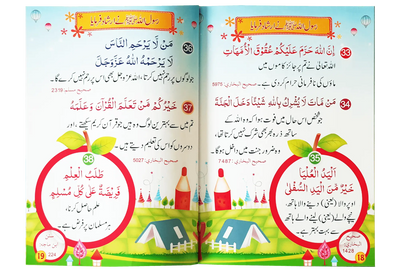 رسول اللہ ﷺ نے ارشاد فرمایا
33
اِنَّ اللهَ حَرَّمَ عَلَيْكُمْ عُقُوْقَ الْاُمَّهَاتِ
اللہ تعالیٰ نے تم پر جائز کاموں میں
ماؤں کی نافرمانی حرام کر دی ہے۔
صحیح البخاری: 5975
34
مَنْ مَاتَ لَا يُشْرِكُ بِاللهِ شَيْئًا دَخَلَ الْجَنَّةَ
جو شخص اس حال میں فوت ہو کہ وہ اللہ کے
ساتھ ذرہ بھر بھی شرک نہیں کرتا تھا،
وہ ضرور جنت میں داخل ہوگا۔
صحیح البخاری: 7487
35
اَلْيَدُ الْعُلْيَا
خَيْرٌ مِّنَ الْيَدِ السُّفْلٰى
اوپر والا (یعنی) دینے والا ہاتھ
نیچے والے (یعنی) لینے والے ہاتھ
سے بہتر ہے۔
صحیح البخاری:
1428
18
رسول اللہ ﷺ نے ارشاد فرمایا
36
مَنْ لَّا يَرْحَمِ النَّاسَ
لَا يَرْحَمْهُ اللهُ عَزَّوَجَلَّ
جو لوگوں پر رحم نہیں کرتا، اللہ عزوجل بھی اس پر رحم نہیں کرے گا۔
صحیح مسلم: 2319
37
خَيْرُكُمْ مَّنْ تَعَلَّمَ الْقُرْاٰنَ وَعَلَّمَهٗ
تم میں سے بہترین لوگ وہ ہیں جو قرآن کریم سیکھتے اور
دوسروں کو اس کی تعلیم دیتے ہیں۔
صحیح البخاری: 5027
38
طَلَبُ الْعِلْمِ
فَرِيْضَةٌ عَلٰى كُلِّ مُسْلِمٍ
علم حاصل کرنا،
ہر مسلمان پر فرض ہے۔
224
19